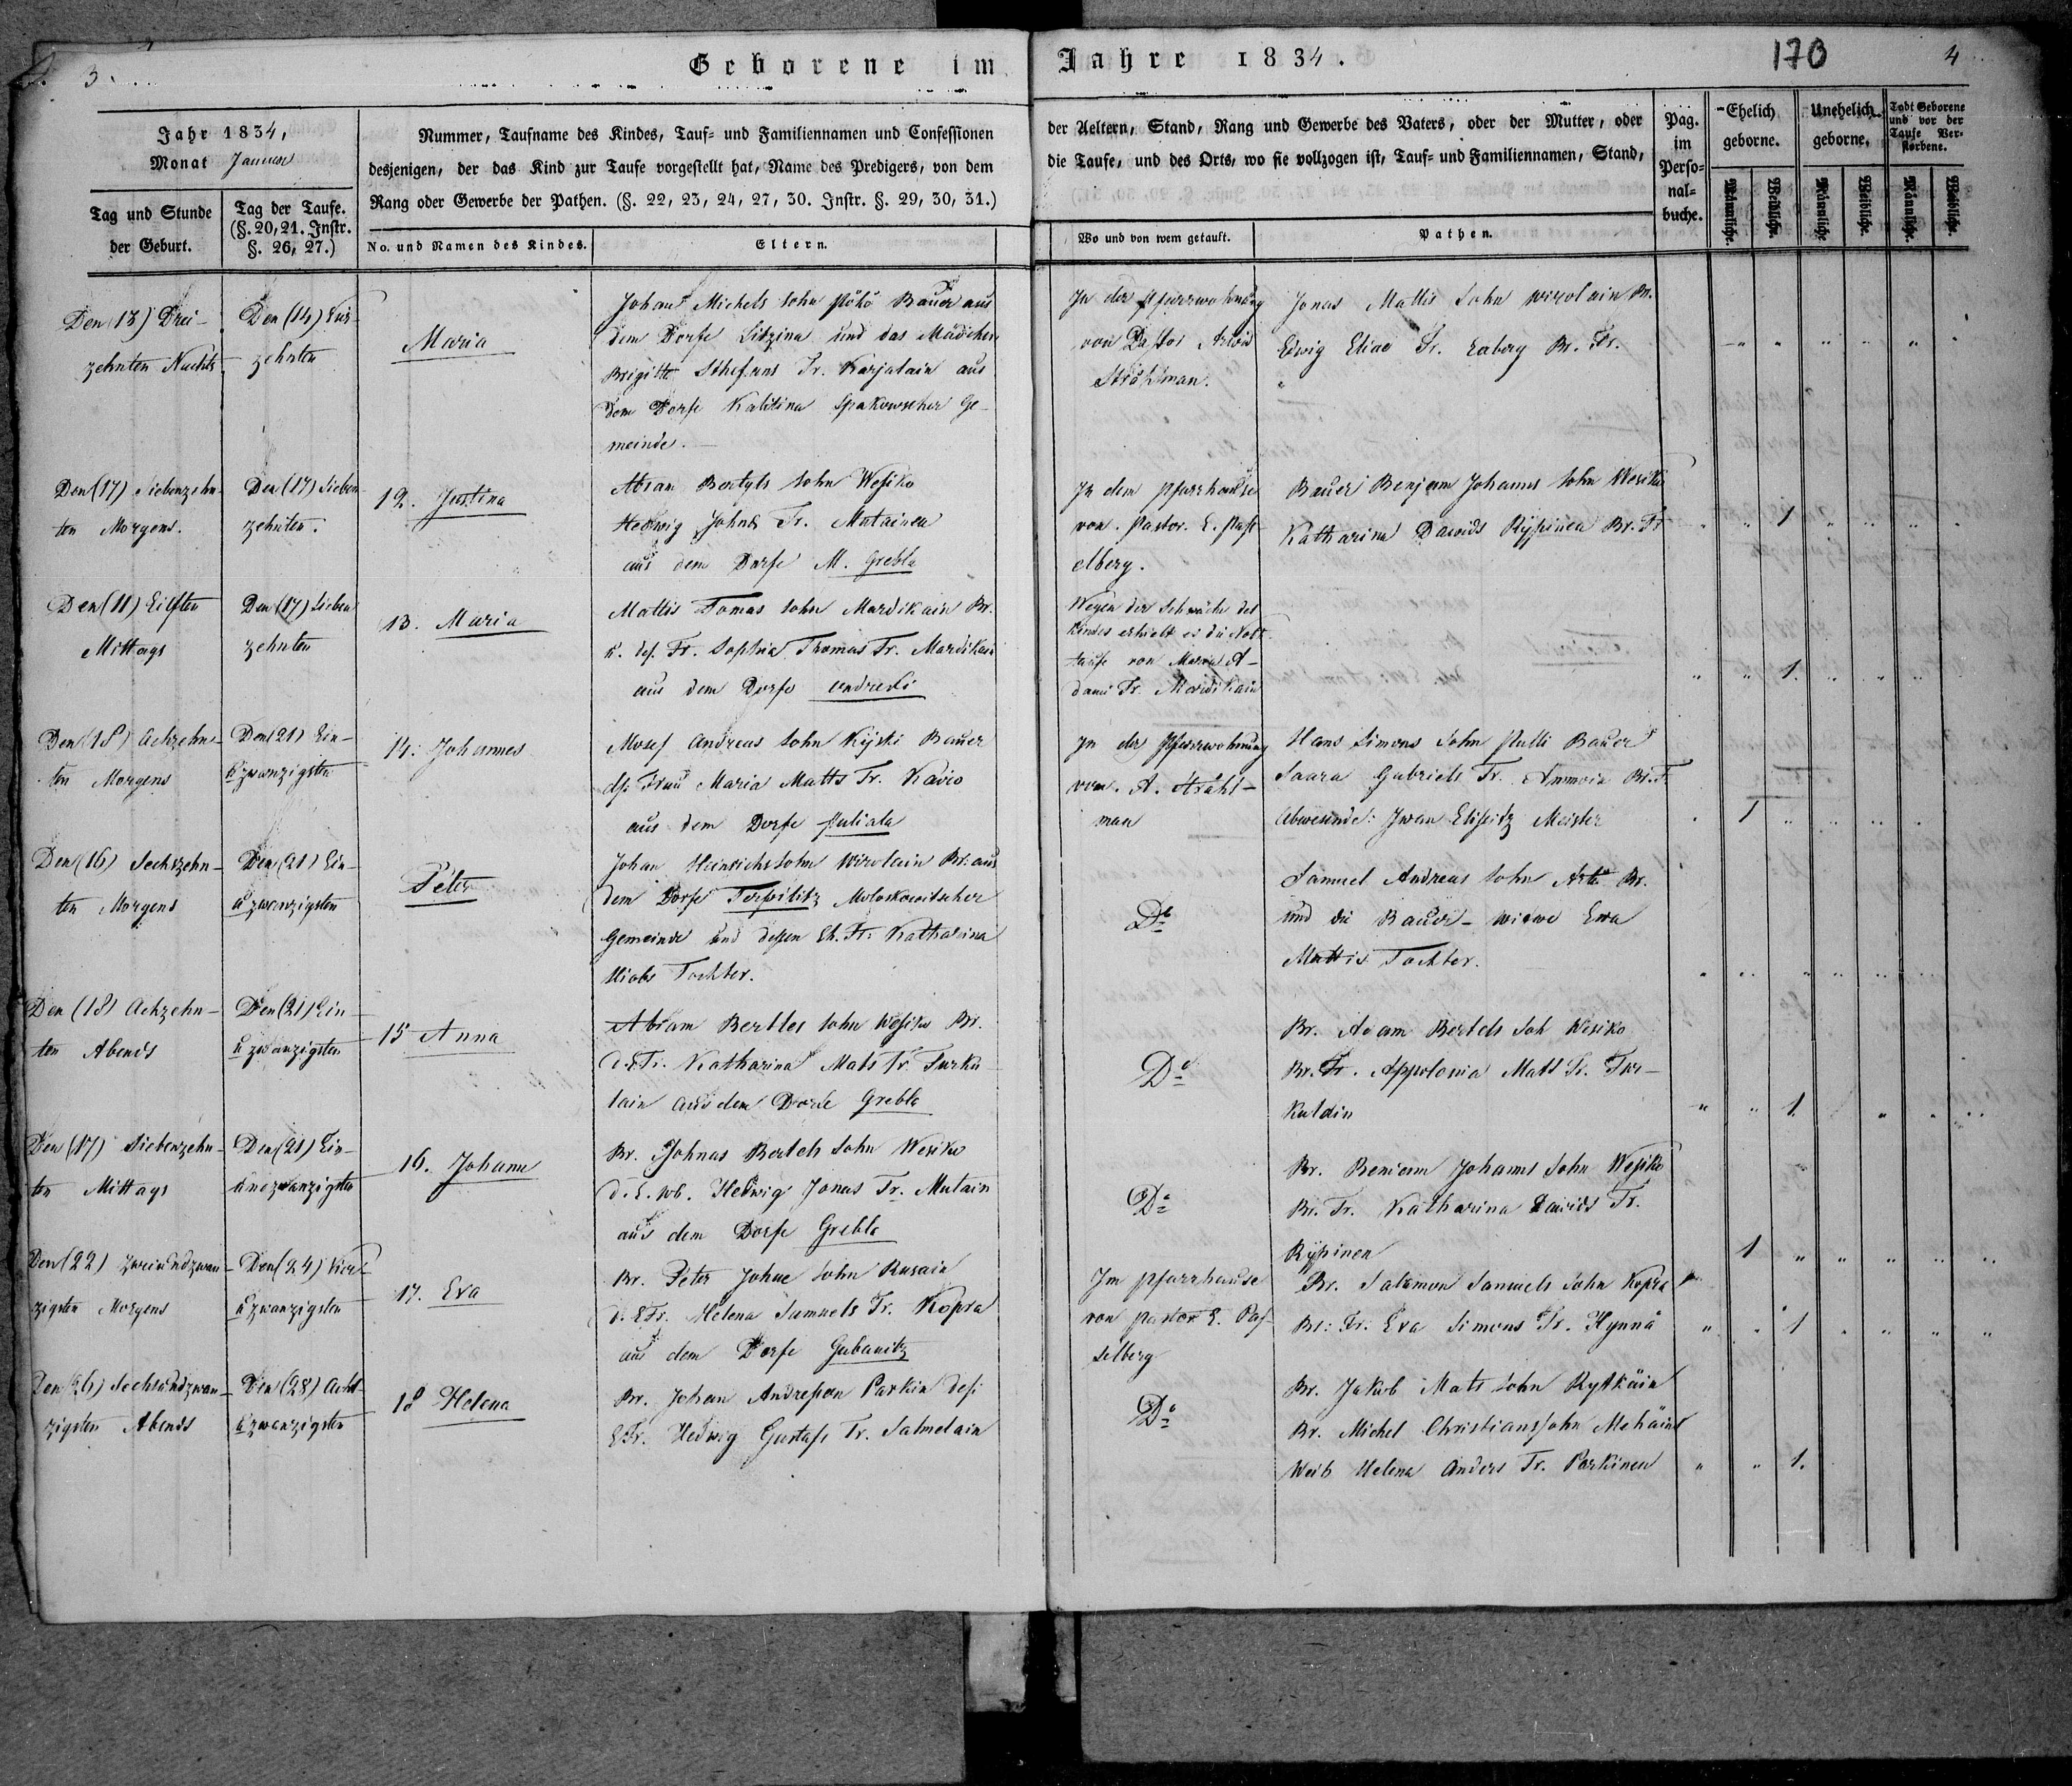 3.
Geborene im Jahre 1834.
170
4
Jahr 1834,
Monat Januar
Tag und Stunde
der Geburt.
Tag der Taufe.
(§. 20, 21. Instr.
§. 26, 27.)
Nummer, Taufname des Kindes, Tauf- und Familiennamen und Confessionen
desjenigen, der das Kind zur Taufe vorgestellt hat, Name des Predigers, von dem
Rang oder Gewerbe der Pathen. (§. 22, 23, 24, 27, 30. Instr. §. 29, 30, 31.)
No. und Namen des Kindes.
Eltern.
der Aeltern, Stand, Rang und Gewerbe des Vaters, oder der Mutter, oder
die Taufe, und des Orts, wo sie vollzogen ist, Tauf- und Familiennamen, Stand,
Wo und von wem getauft.
Pathen.
Pag.
im
Perso-
nal-
buche.
Ehelich
geborne.
Unehelich
geborne.
Todt Geborene
und vor der
Taufe Ver-
storbene.
Männliche.
Weibliche.
Männliche.
Weibliche.
Männliche.
Weibliche.
Den (13) Drei-
zehnten Nachts
Den (14) Vier-
zehnten
Maria
Johan Michels sohn Bauer aus
dem Dorfe und das Mädchen
Brigitte Tr. Karjalain aus
dem Dorfe Ge-
meinde.
In der Pfarrwohnung
von Pastor Arwid
Strahlman.
Jonas Mattis Sohn Wirolain Br.
Edwig Elias Tr. Br. Tr.
Den (17) Siebenzehn-
ten Morgens.
Den (17) Sieben-
zehnten.
12. Justina
Abram Bertyls sohn Wesiko
Hedwig Johns Tr. Mutainen
aus dem Dorfe M. Grebla
In dem Pfarrhause
von Pastor E. Pass-
elberg.
Bauer Benjam Johanns sohn Wesiko
Katharina Dawids Rypinen Br. Tr
1
Den (11) Eilften
Mittags
Den (17) Sieben
zehnten
13. Maria
Mattis Tomas sohn Mardikain Br.
u. des. Fr. Sophia Thomas Tr. Mardikain
aus dem Dorfe
Wegen der Schwäche des
Kindes erhielt es die Noth-
taufe von Maria A-
dams Tr. Mardikain
1.
Den (18) Achzehn-
ten Morgens
Den (21) Ein-
u zwanzigsten
14. Johannes
Mosef Andreas sohn Kyski Bauer
ds. Frau Maria Matts Tr. Kavio
aus dem Dorfe Puliala
In der Pfarrwohnung
von A. Strahl-
man
Hans Simons Sohn Pulli Bauer
Saara Gabriels Tr. Br. T.
Abwesende: Iwan Meister
1
Den (16) Sechzehn-
ten Morgens
Den (21) Ein-
u zwanzigsten
Peter
Johan Heinrichs sohn Wirolain Br. aus
dem Dorfe Terpilitz Moloskowitscher
Gemeinde und dessen Eh. Fr. Katharina
Hiobs Tochter.
Do
Samuel Andreas sohn Br.
und die Bauer-Witwe Ewa
Mattis Tochter.
Den (18) Achzehn-
ten Abends
Den (21) Ein-
u zwanzigsten
15 Anna
Abram Berttes sohn Wesiko Br.
d. E. Fr. Katharina Mats Tr. Turku-
lain aus dem Dorfe Grebla
Do
Br. Adam Bertels Soh Wesiko
Br. Tr. Appolonia Mats Tr. Tur-
kulain
1.
Den (17) Siebenzehn-
ten Mittags
Den (21) Ein-
undzwanzigsten
16. Johann
Br. Johnas Bertels Sohn Wesiko
d. E. Wb. Hedwig Jonas Tr. Mutain
aus dem Dorfe Grebla
Do
Br. Beniam Johanns Sohn Wesiko
Br. Tr. Katharina Dawids Tr.
Rypinen
1
Den (22) Zweiundzwan-
zigsten Morgens
Den (24) Vier-
u zwanzigsten
17. Eva
Br. Peter Johne sohn Rusain
d. E Fr. Helena Samuels Tr. Kopra
aus dem Dorfe Gubanitz
Im Pfarrhause
von Pastor E. Pas-
selberg
Br. Salamon Samuels Sohn Kopra
Br. Tr. Eva Simons Tr. Hynnä
1
Den (26) Sechsundzwan-
zigsten Abends
Den (28) Acht-
u zwanzigsten
18 Helena
Br. Johan Andresson Parkin des.
E Fr. Hedwig Gustafs Tr. Salmelain
Do
Br. Jakob Mats sohn Rytkäin
Br. Michel Christianssohn Mehäine
Weib Helena Anders Tr. Parkinen
1.